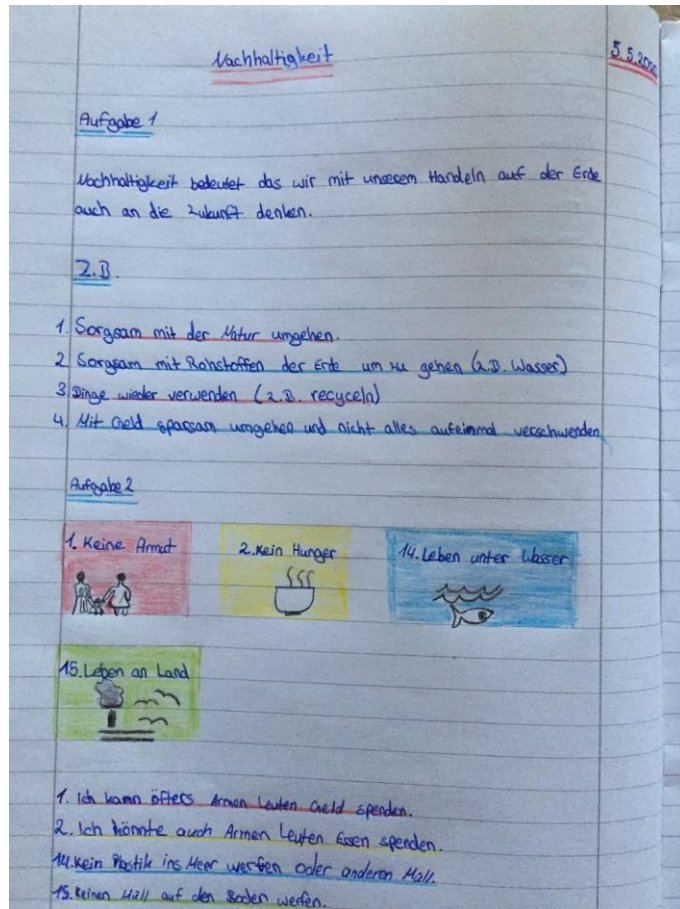 Nachhaltigkeit
Aufgabe 1
Nachhaltigkeit bedeutet das wir mit unserem Handeln auf der Erde
auch an die Zukunft denken.
Z.B.
1. Sorgsam mit der Natur umgehen.
2 Sorgsam mit Rohstoffen der Erde um zu gehen (z.B. Wasser)
3 Dinge wieder verwenden (z.B. recyceln)
4. Mit Geld sparsam umgehen und nicht alles aufeinmal verschwenden
Aufgabe 2
1. Keine Armut
2. Kein Hunger
14. Leben unter Wasser
15. Leben an Land
1. Ich kann öfters Armen Leuten Geld spenden.
2. Ich könnte auch Armen Leuten Essen spenden.
14. Kein Plastik ins Meer werfen oder anderen Müll.
15. Keinen Müll auf den Boden werfen.